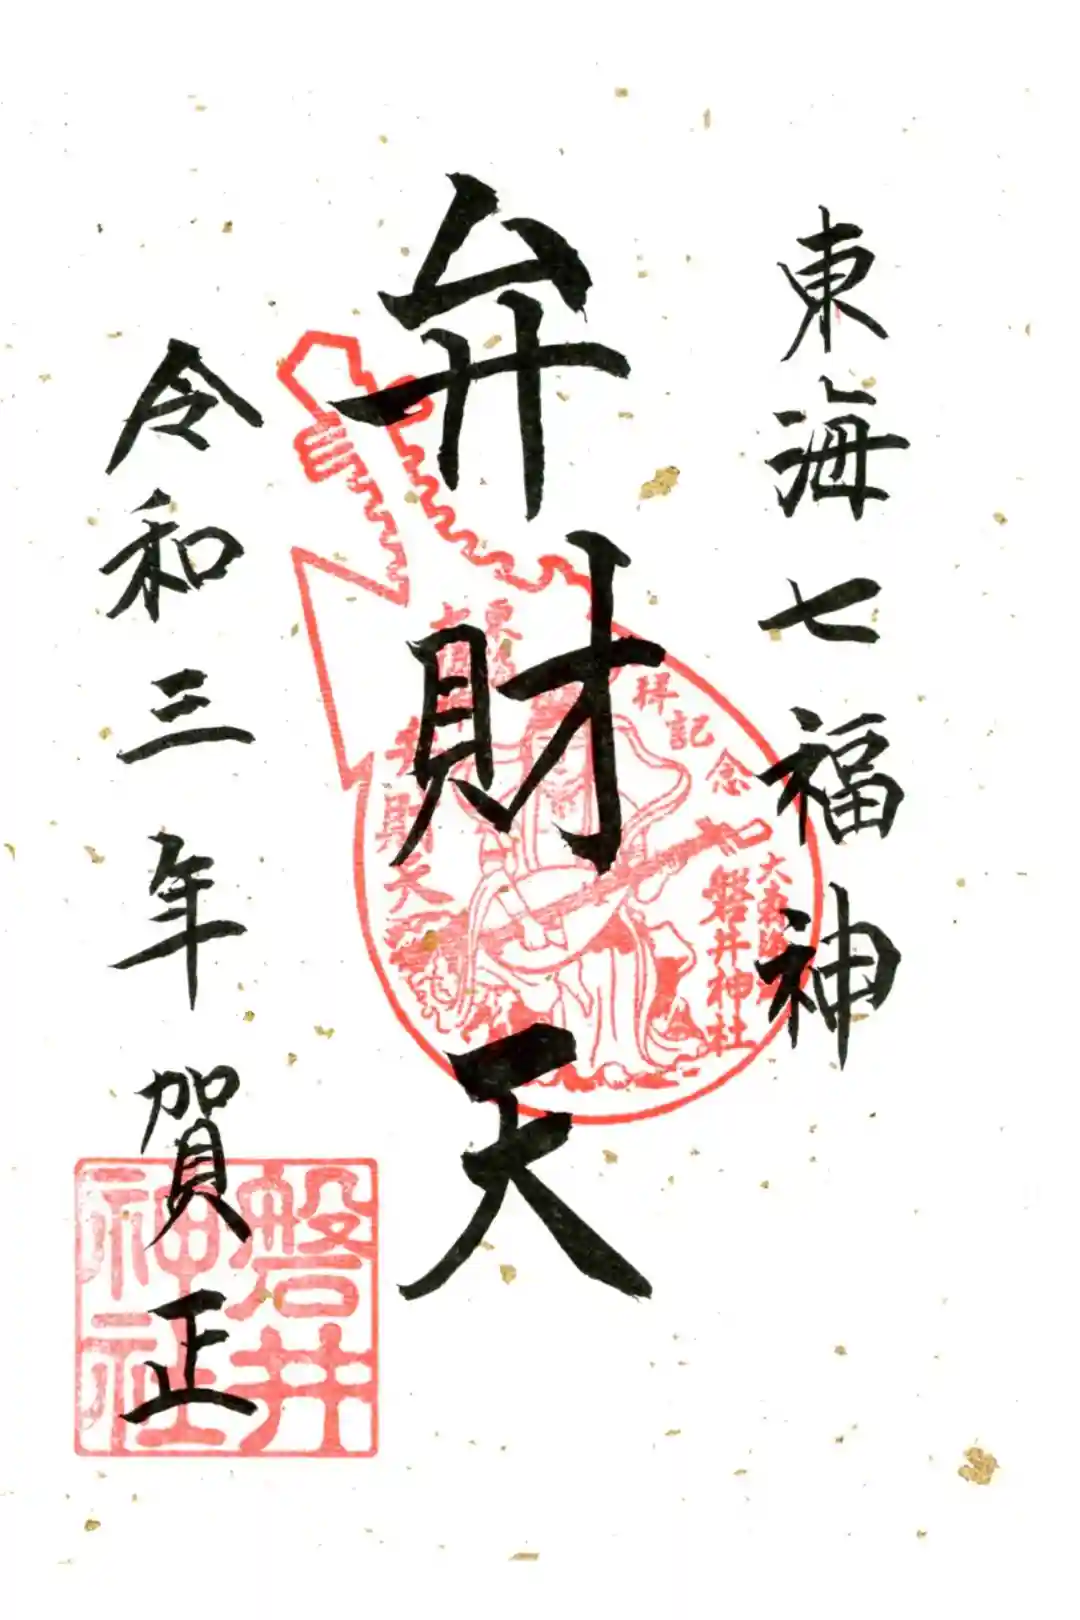 東海七福神
弁財天
令和三年 賀正
拝記念
弁財天
大森海岸
磐井神社
磐井
神社